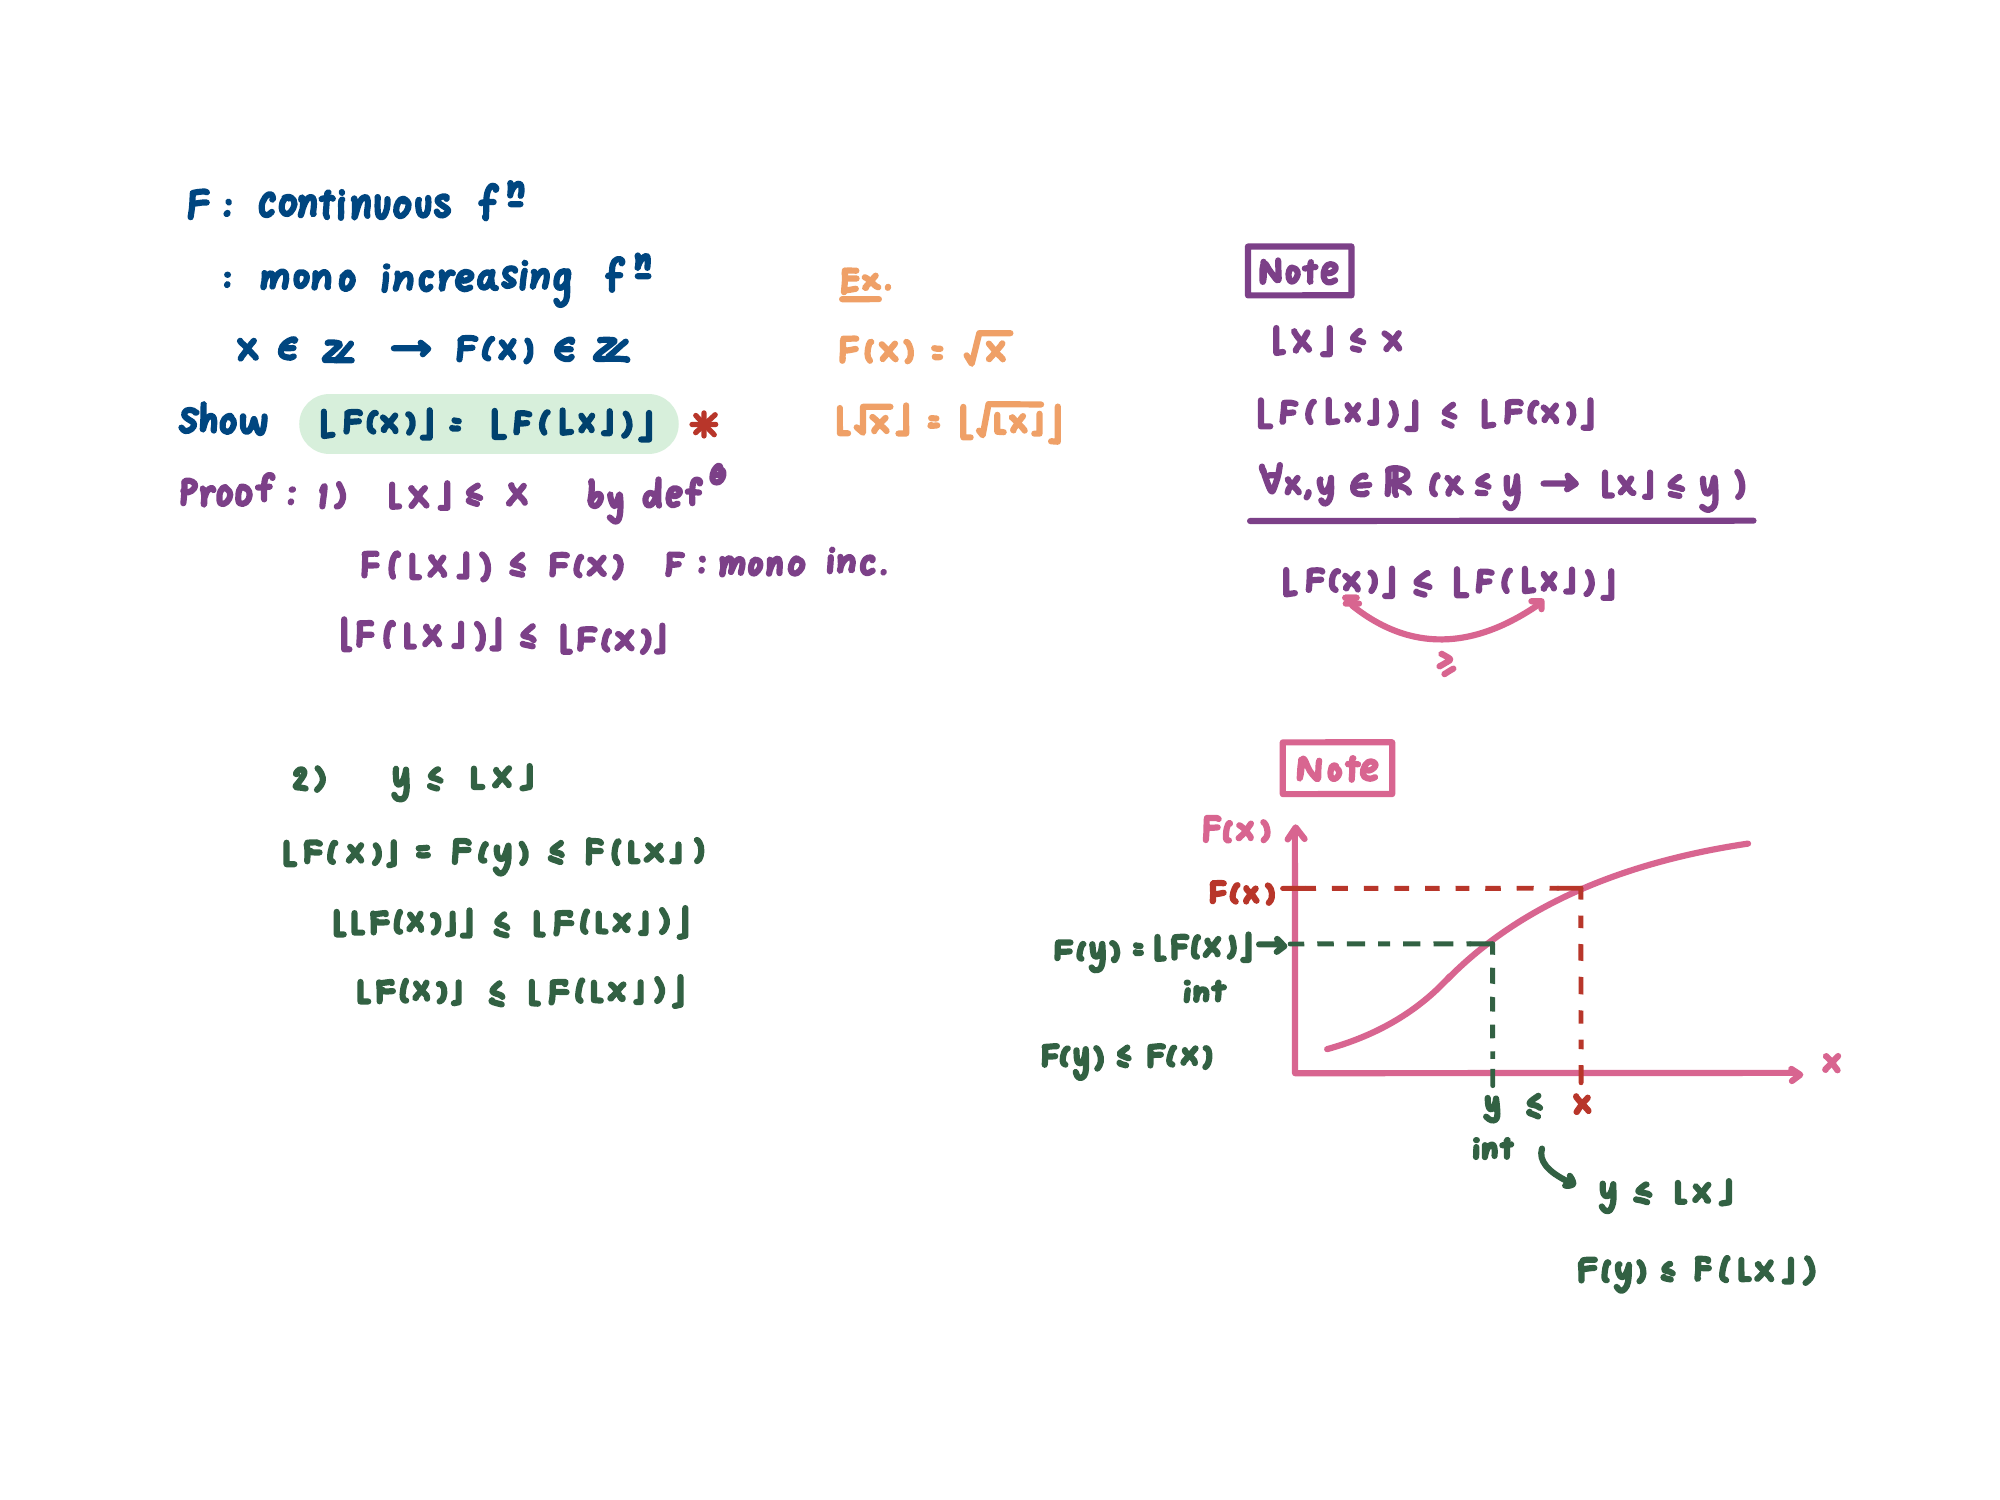 F : continuous fⁿ
: mono increasing fⁿ
x ∈ ℤ → F(x) ∈ ℤ
Show ⌊F(x)⌋ = ⌊F(⌊x⌋)⌋ *
Proof : 1) ⌊x⌋ ≤ x by defⁿ
F(⌊x⌋) ≤ F(x) F : mono inc.
⌊F(⌊x⌋)⌋ ≤ ⌊F(x)⌋
2) y ≤ ⌊x⌋
⌊F(x)⌋ = F(y) ≤ F(⌊x⌋)
⌊⌊F(x)⌋⌋ ≤ ⌊F(⌊x⌋)⌋
⌊F(x)⌋ ≤ ⌊F(⌊x⌋)⌋
Ex.
F(x) = √x
⌊√x⌋ = ⌊√⌊x⌋⌋
Note
⌊x⌋ ≤ x
⌊F(⌊x⌋)⌋ ≤ ⌊F(x)⌋
∀x,y ∈ ℝ (x ≤ y → ⌊x⌋ ≤ y)
⌊F(x)⌋ ≤ ⌊F(⌊x⌋)⌋
≥
Note
F(x)
F(x)
F(y) = ⌊F(x)⌋ →
int
F(y) ≤ F(x)
x
y ≤ x
int
y ≤ ⌊x⌋
F(y) ≤ F(⌊x⌋)